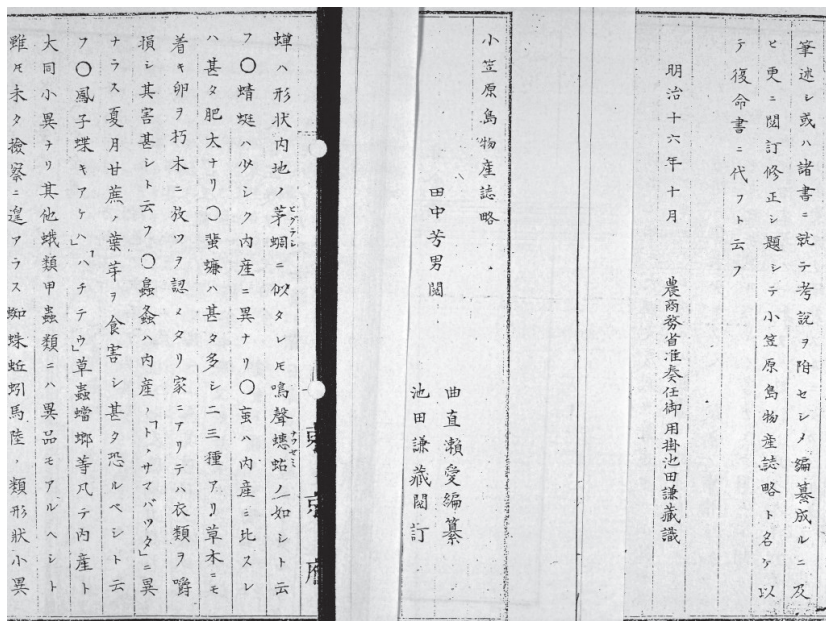 筆述シ或ハ諸書ニ就テ考説ヲ附セシメ編纂成ルニ及
ヒ更ニ閲訂修正シ題シテ小笠原島物産誌略ト名ケ以
テ復命書ニ代フト云フ
明治十六年十月　農商務省准奏任御用掛池田謙蔵識
小笠原島物産誌略
田中芳男閲
曲直瀬愛編纂
池田謙蔵閲訂
東京府
蟬ハ形状内地ノ茅蜩ニ似タレ𪜈鳴聲蟪蛄ノ如シト云
ヒグラシ
ナツゼミ
フ〇蜻蜓ハ少シク内産ニ異ナリ〇䖟ハ内産ニ比スレ
ハ甚タ肥大ナリ〇蜚蠊ハ甚タ多シ二三種アリ草木ニモ
着キ卵ヲ朽木ニ放ツヲ認メタリ家ニアリテハ衣類ヲ嚼
損シ其害甚シト云フ〇螽ハ内産ノ「トノサマバツタ」ニ異
ナラス夏月甘蔗ノ葉芽ヲ食害シ甚タ恐ルベシト云
フ〇鳳子蝶キアケハ」「ハチテウ」草蟲蟷螂等凡テ内産ト
大同小異ナリ其他蛾類甲蟲類ニハ異品モアルヘシト
雖𪜈未タ撿察ニ遑アラス蜘蛛蚯蚓馬陸ノ類形状小異